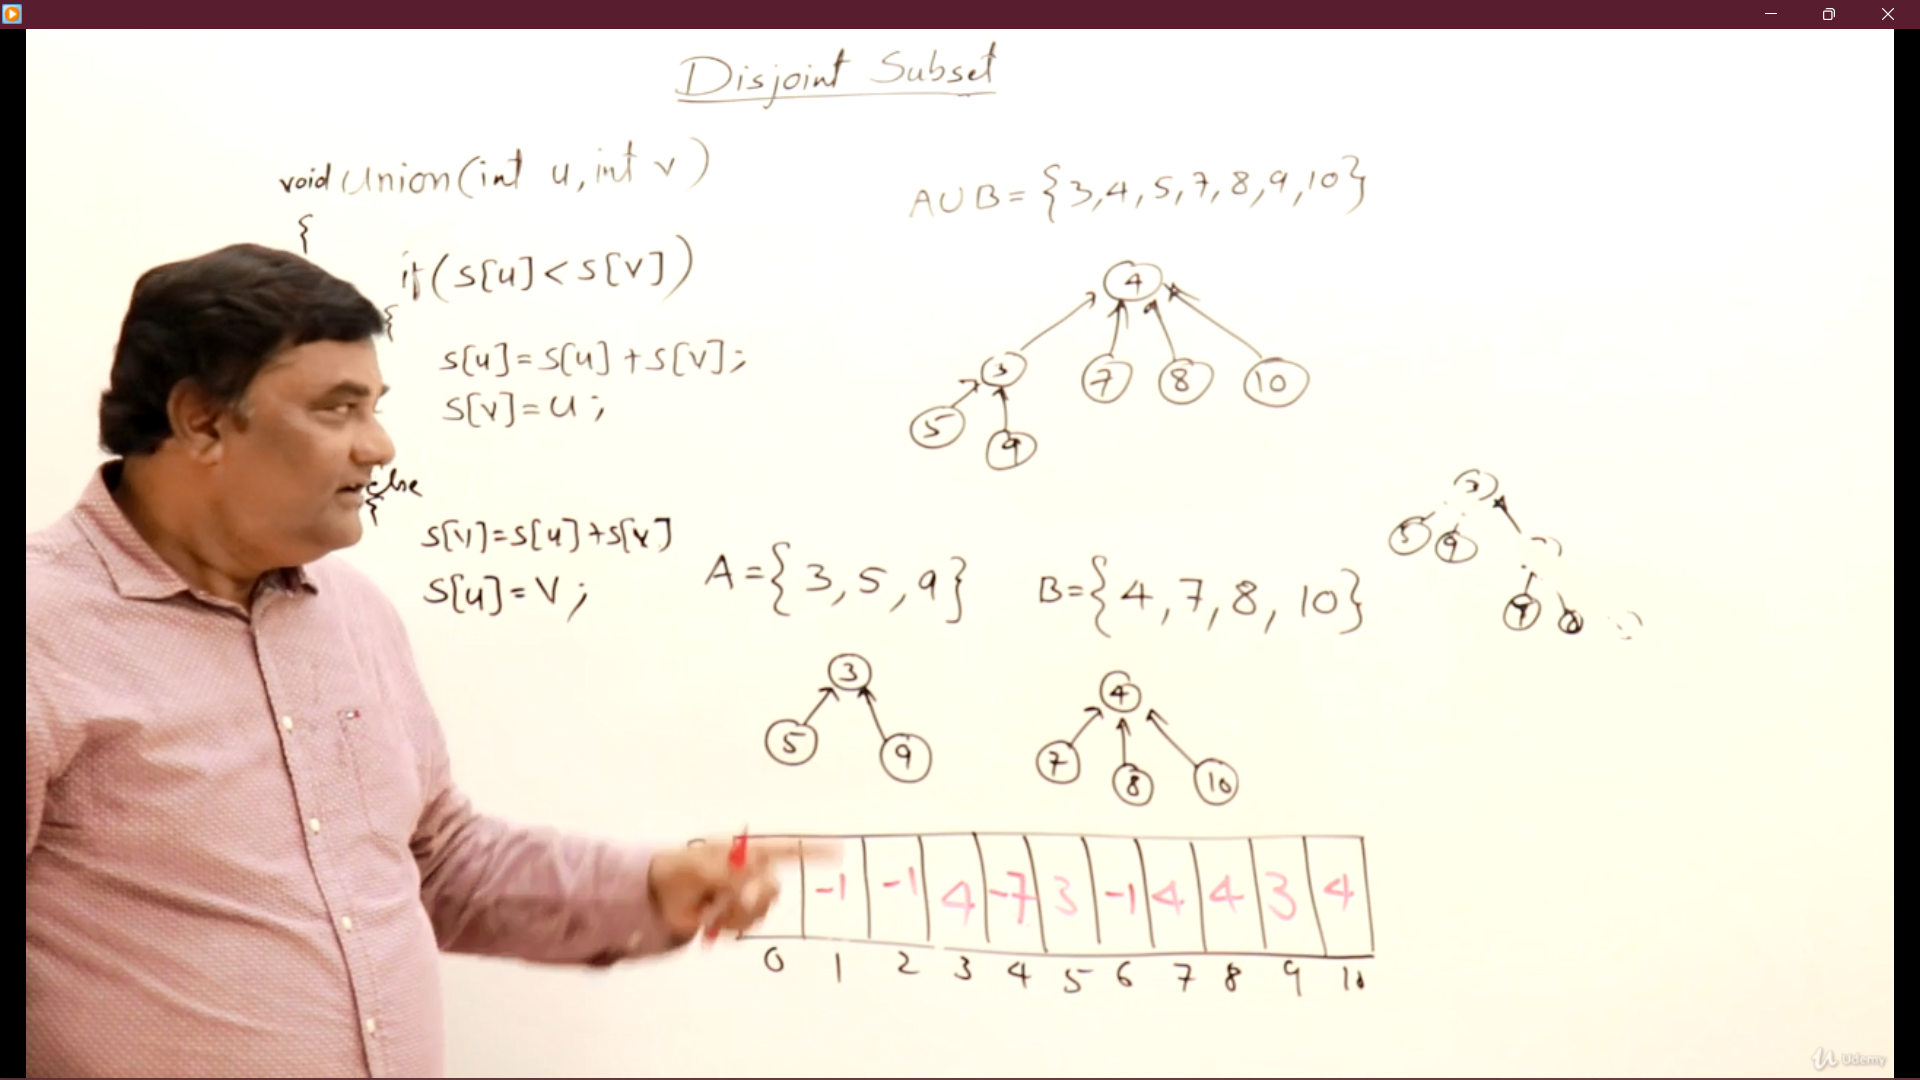 Disjoint Subset
void Union(int u, int v)
{
if(s[u]<s[v])
{
s[u]=s[u]+s[v];
s[v]=u;
else
{
s[v]=s[u]+s[v]
s[u]=v;
AUB={3,4,5,7,8,9,10}
4
3 7 8 10
5 9
A={3,5,9} B={4,7,8,10}
3
5 9
4
7 8 10
3
5 9
7 8
-1 -1 4 -7 3 -1 4 4 3 4
0 1 2 3 4 5 6 7 8 9 10
Udemy